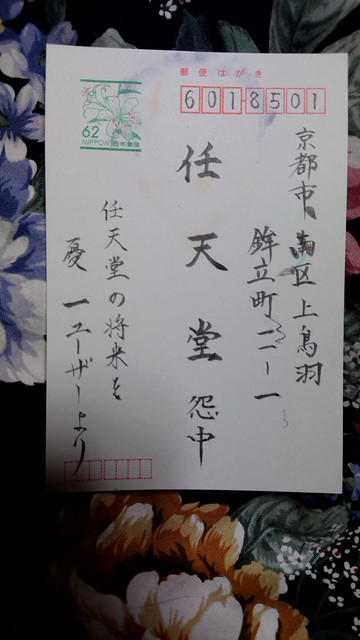 郵便はがき
601-8501
62
NIPPON 日本郵便
京都市南区上鳥羽
鉾立町一一ー一
任天堂 怨中
任天堂の将来を
憂 一ユーザーより